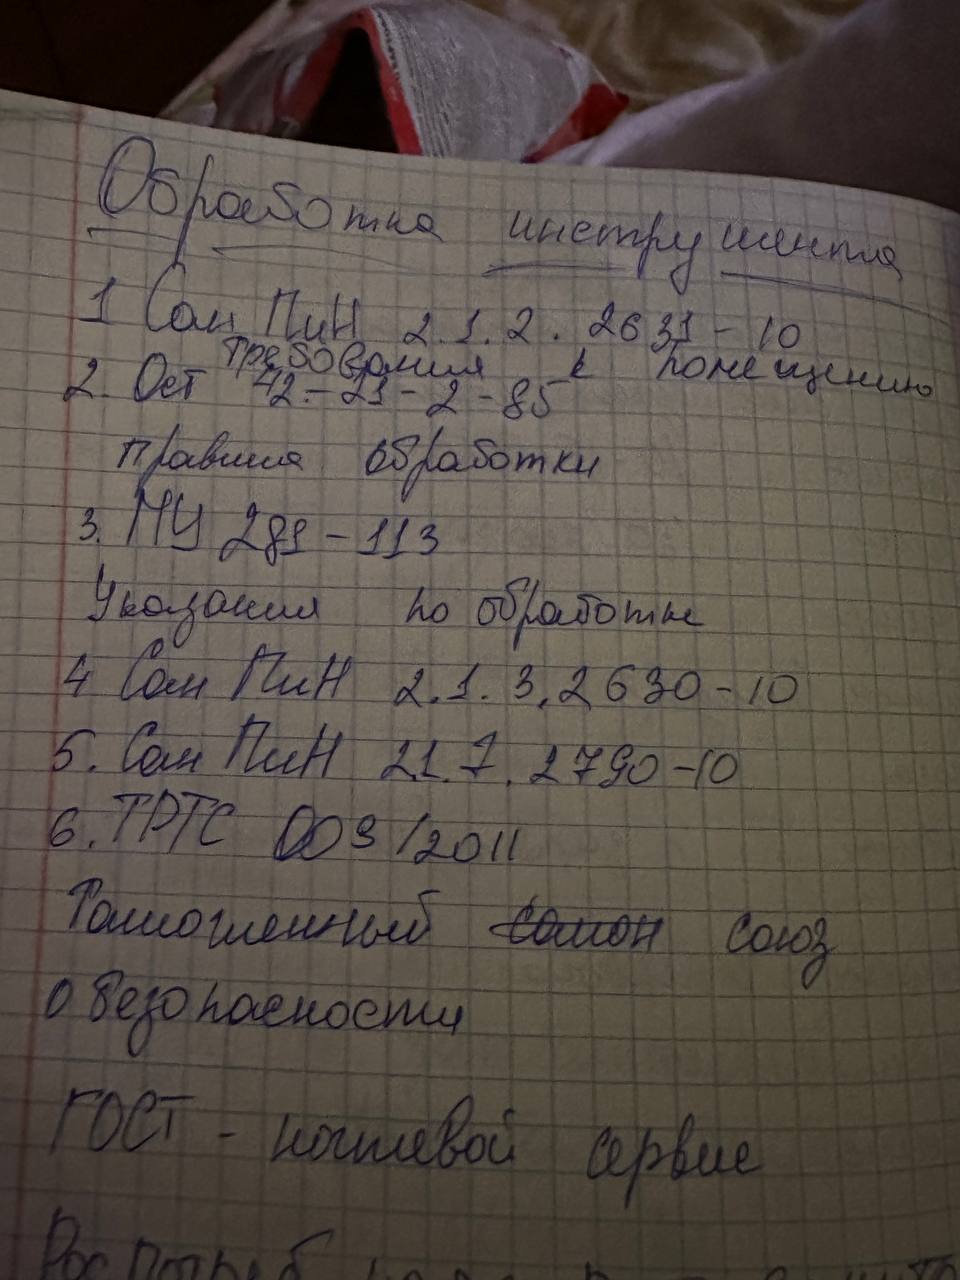 Обработка инструмента
1 Сан ПиН 2.1.2. 2631-10
требования к помещению
2. Ост 42-21-2-85
правила обработки
3. МУ 287-113
Указания по обработке
4 Сан ПиН 2.1.3.2630-10
5. Сан ПиН 21.7.2790-10
6. ТРТС 009/2011
Таможенный союз
о безопасности
ГОСТ - ногтевой сервис